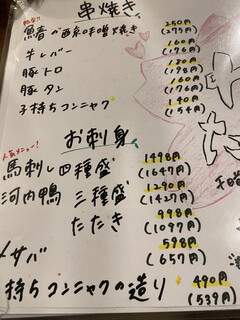 串焼き
鰆の西京味噌焼き 250円
(275円)
牛レバー 160円
(176円)
豚トロ 180円
(198円)
豚タン 160円
(176円)
子持ちコンニャク 140円
(154円)
お刺身
人気メニュー!
馬刺し四種盛 1498円
(1647円)
河内鴨 三種盛 1290円
(1427円)
たたき 998円
(1097円)
メサバ 598円
(657円)
持ちコンニャクの造り 490円
(539円)